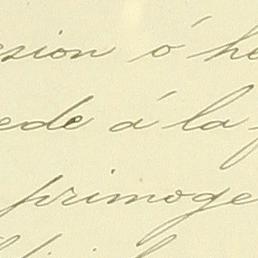 esion ó he
ede á la f
primoge